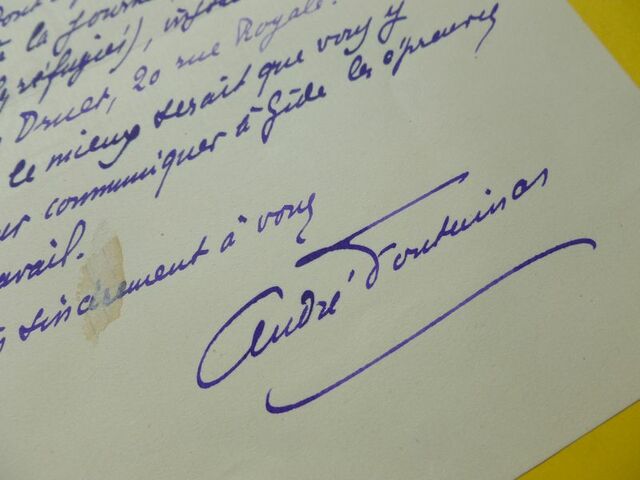 à la journ
réfugiés),
Druet, 20 rue Royale.
le mieux serait que vous y
communiquer à Gide les épreuves
avail.
sincèrement à vous
André Fontainas